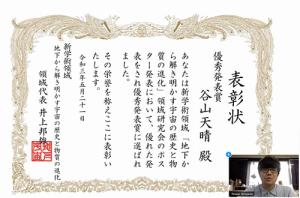 表彰状
優秀発表賞
谷山天晴 殿
あなたは新学術領域「地下か
ら解き明かす宇宙の歴史と物
質の進化」領域研究会のポス
ター発表において、優れた発
表をされ優秀発表賞に選ばれ
ました。
その栄誉を称えここに表彰い
たします。
令和三年五月二十一日
新学術領域
地下から解き明かす宇宙の歴史と物質の進化
領域代表 井上邦雄